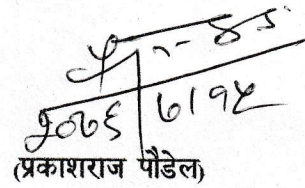 २०७६।७।१५
(प्रकाशराज पौडेल)